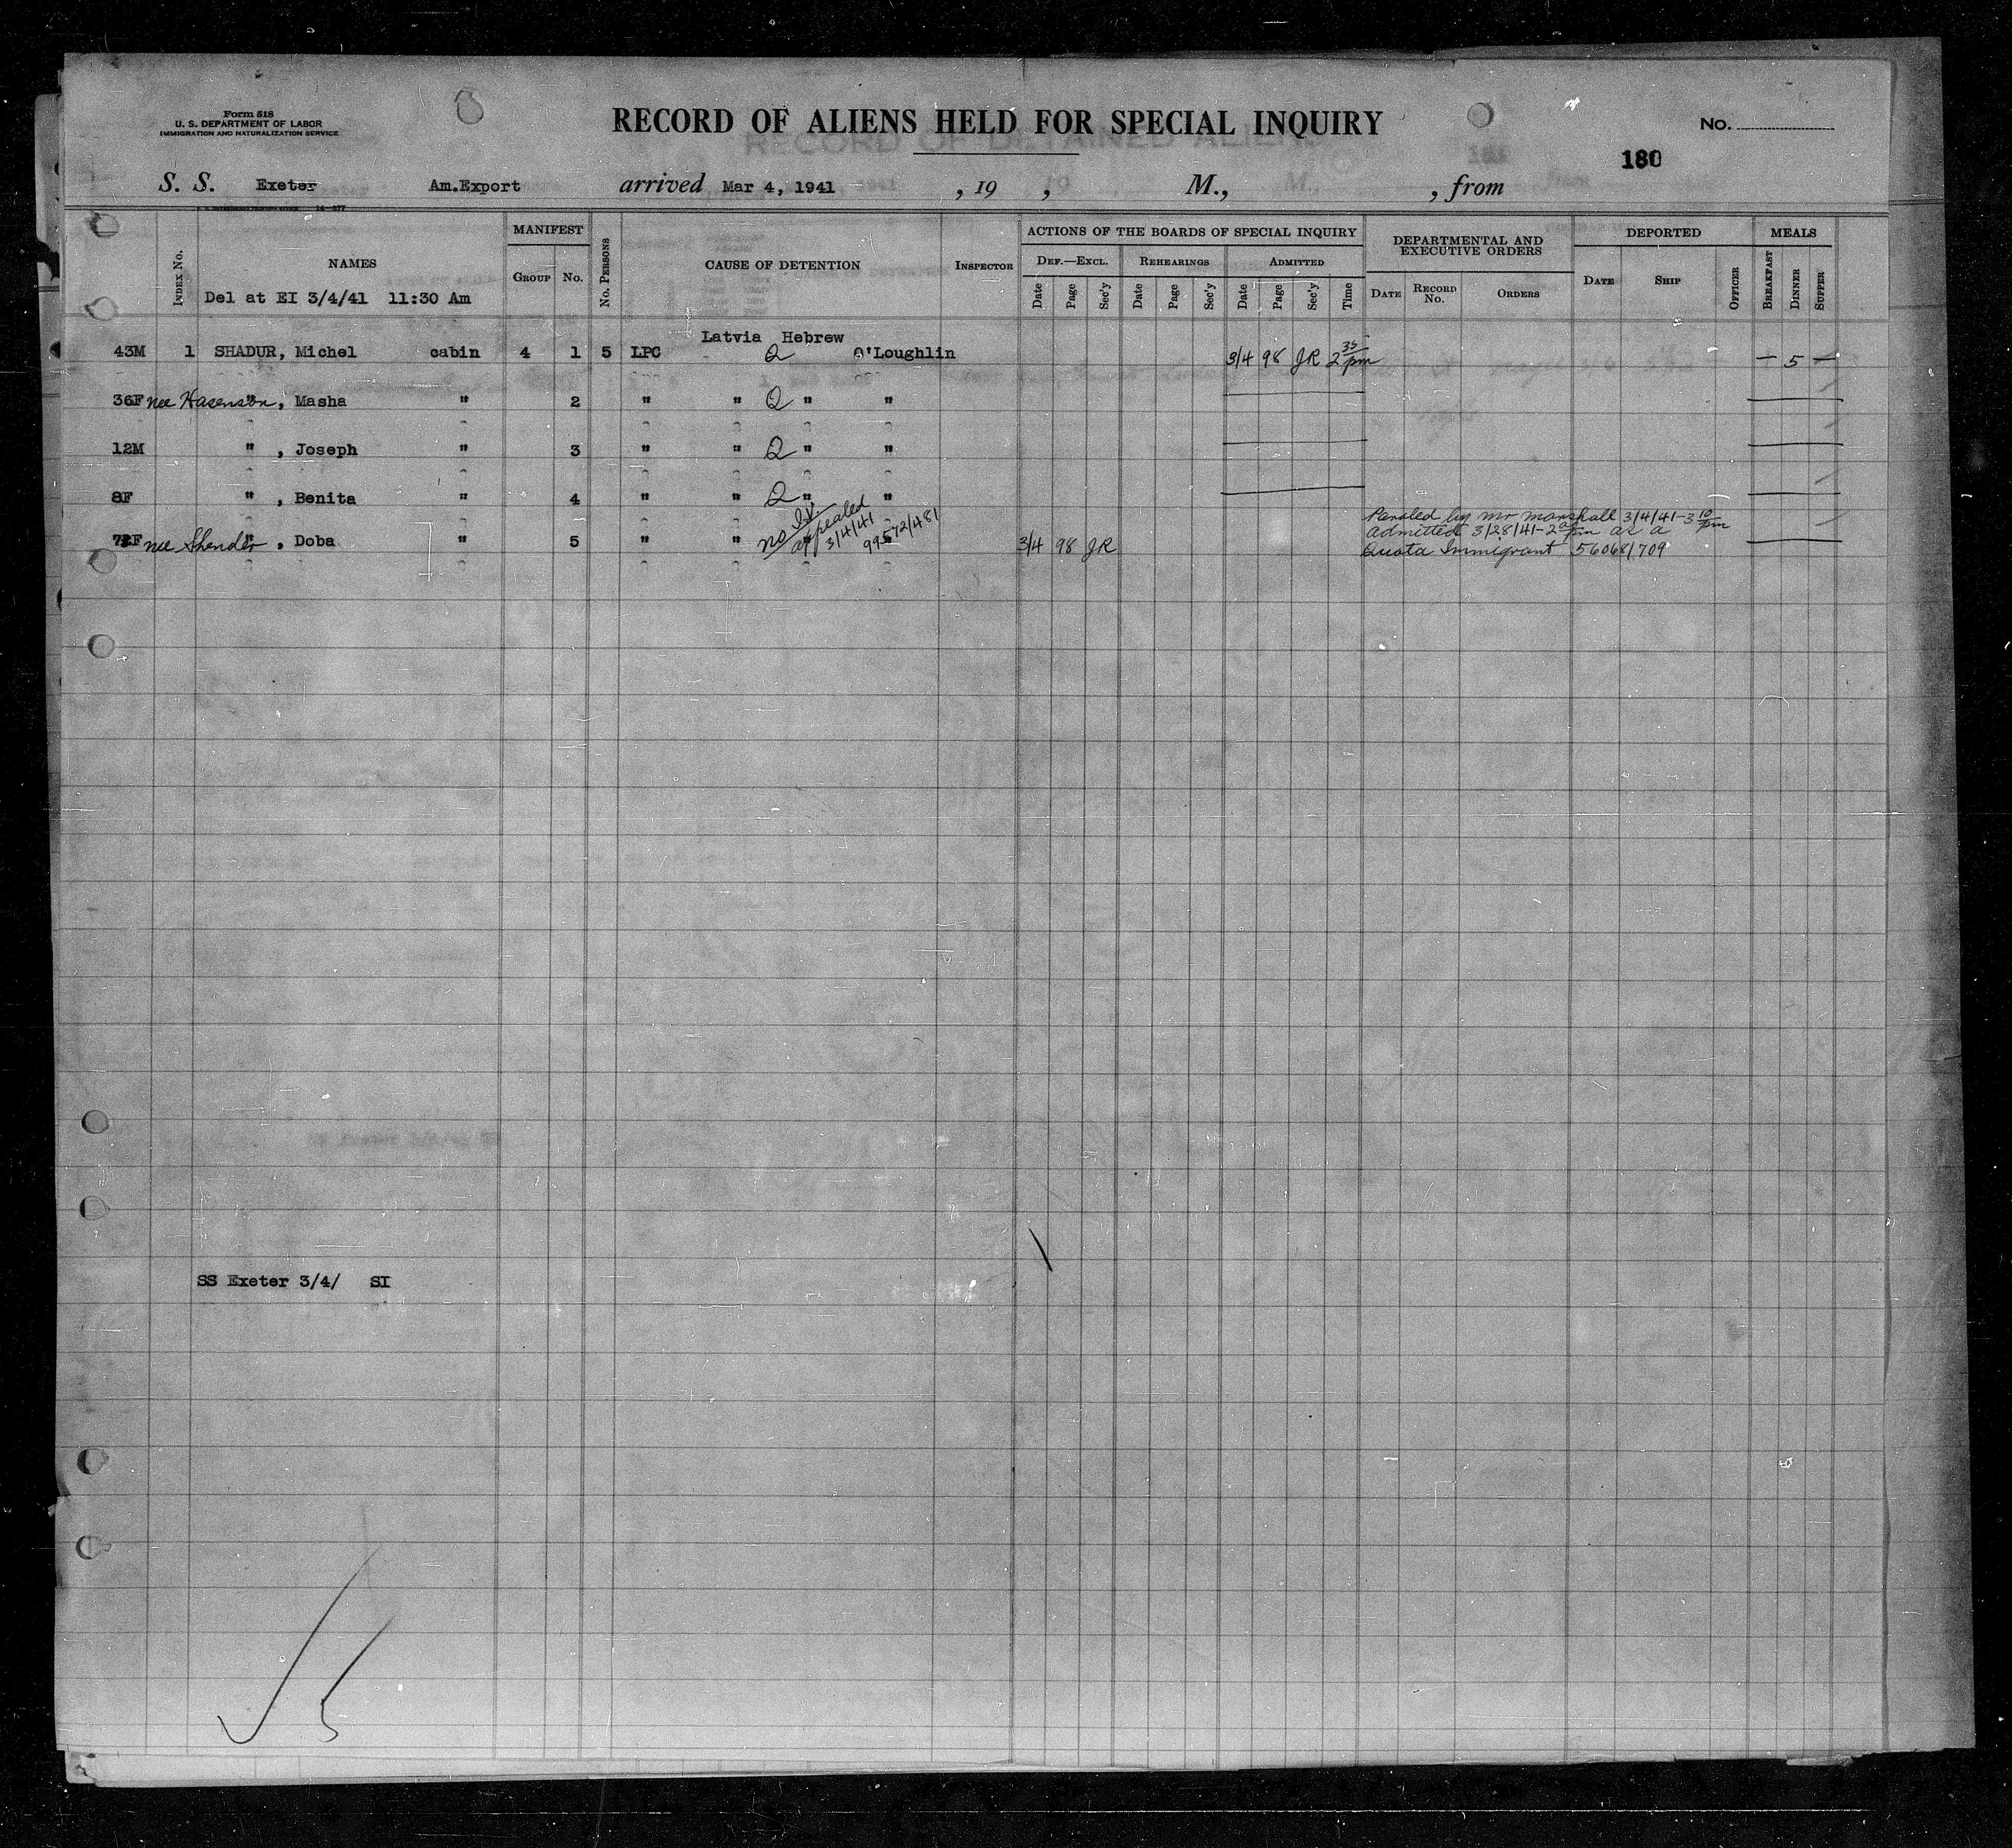 Form 518
U. S. DEPARTMENT OF LABOR
IMMIGRATION AND NATURALIZATION SERVICE
RECORD OF ALIENS HELD FOR SPECIAL INQUIRY
No.
180
S. S. Exeter Am.Export arrived Mar 4, 1941 , 19 , M., , from
MANIFEST ACTIONS OF THE BOARDS OF SPECIAL INQUIRY DEPARTMENTAL AND EXECUTIVE ORDERS DEPORTED MEALS
Index No. NAMES Group No. No. Persons CAUSE OF DETENTION Inspector Def.—Excl. Rehearings Admitted
Date Page Sec'y Date Page Sec'y Date Page Sec'y Time Date Record No. Orders Date Ship Officer Breakfast Dinner Supper
Del at EI 3/4/41 11:30 Am
Latvia Hebrew
43M 1 SHADUR, Michel cabin 4 1 5 LPC Q O'Loughlin 3/4 98 JR 2 35 pm — 5 —
36F nee Hasenson " , Masha " 2 " " Q " "
12M " , Joseph " 3 " " Q " "
8F " , Benita " 4 " " Q " "
Paroled by Mr Marshall 3/4/41-3 10 pm
no I.V. appealed 3/4/41 99572/481
Admitted 3/28/41-2 pm as a
nee Shender " , Doba " 5 " " " 3/4 98 JR Quota Immigrant 56068/709
SS Exeter 3/4/ SI
5